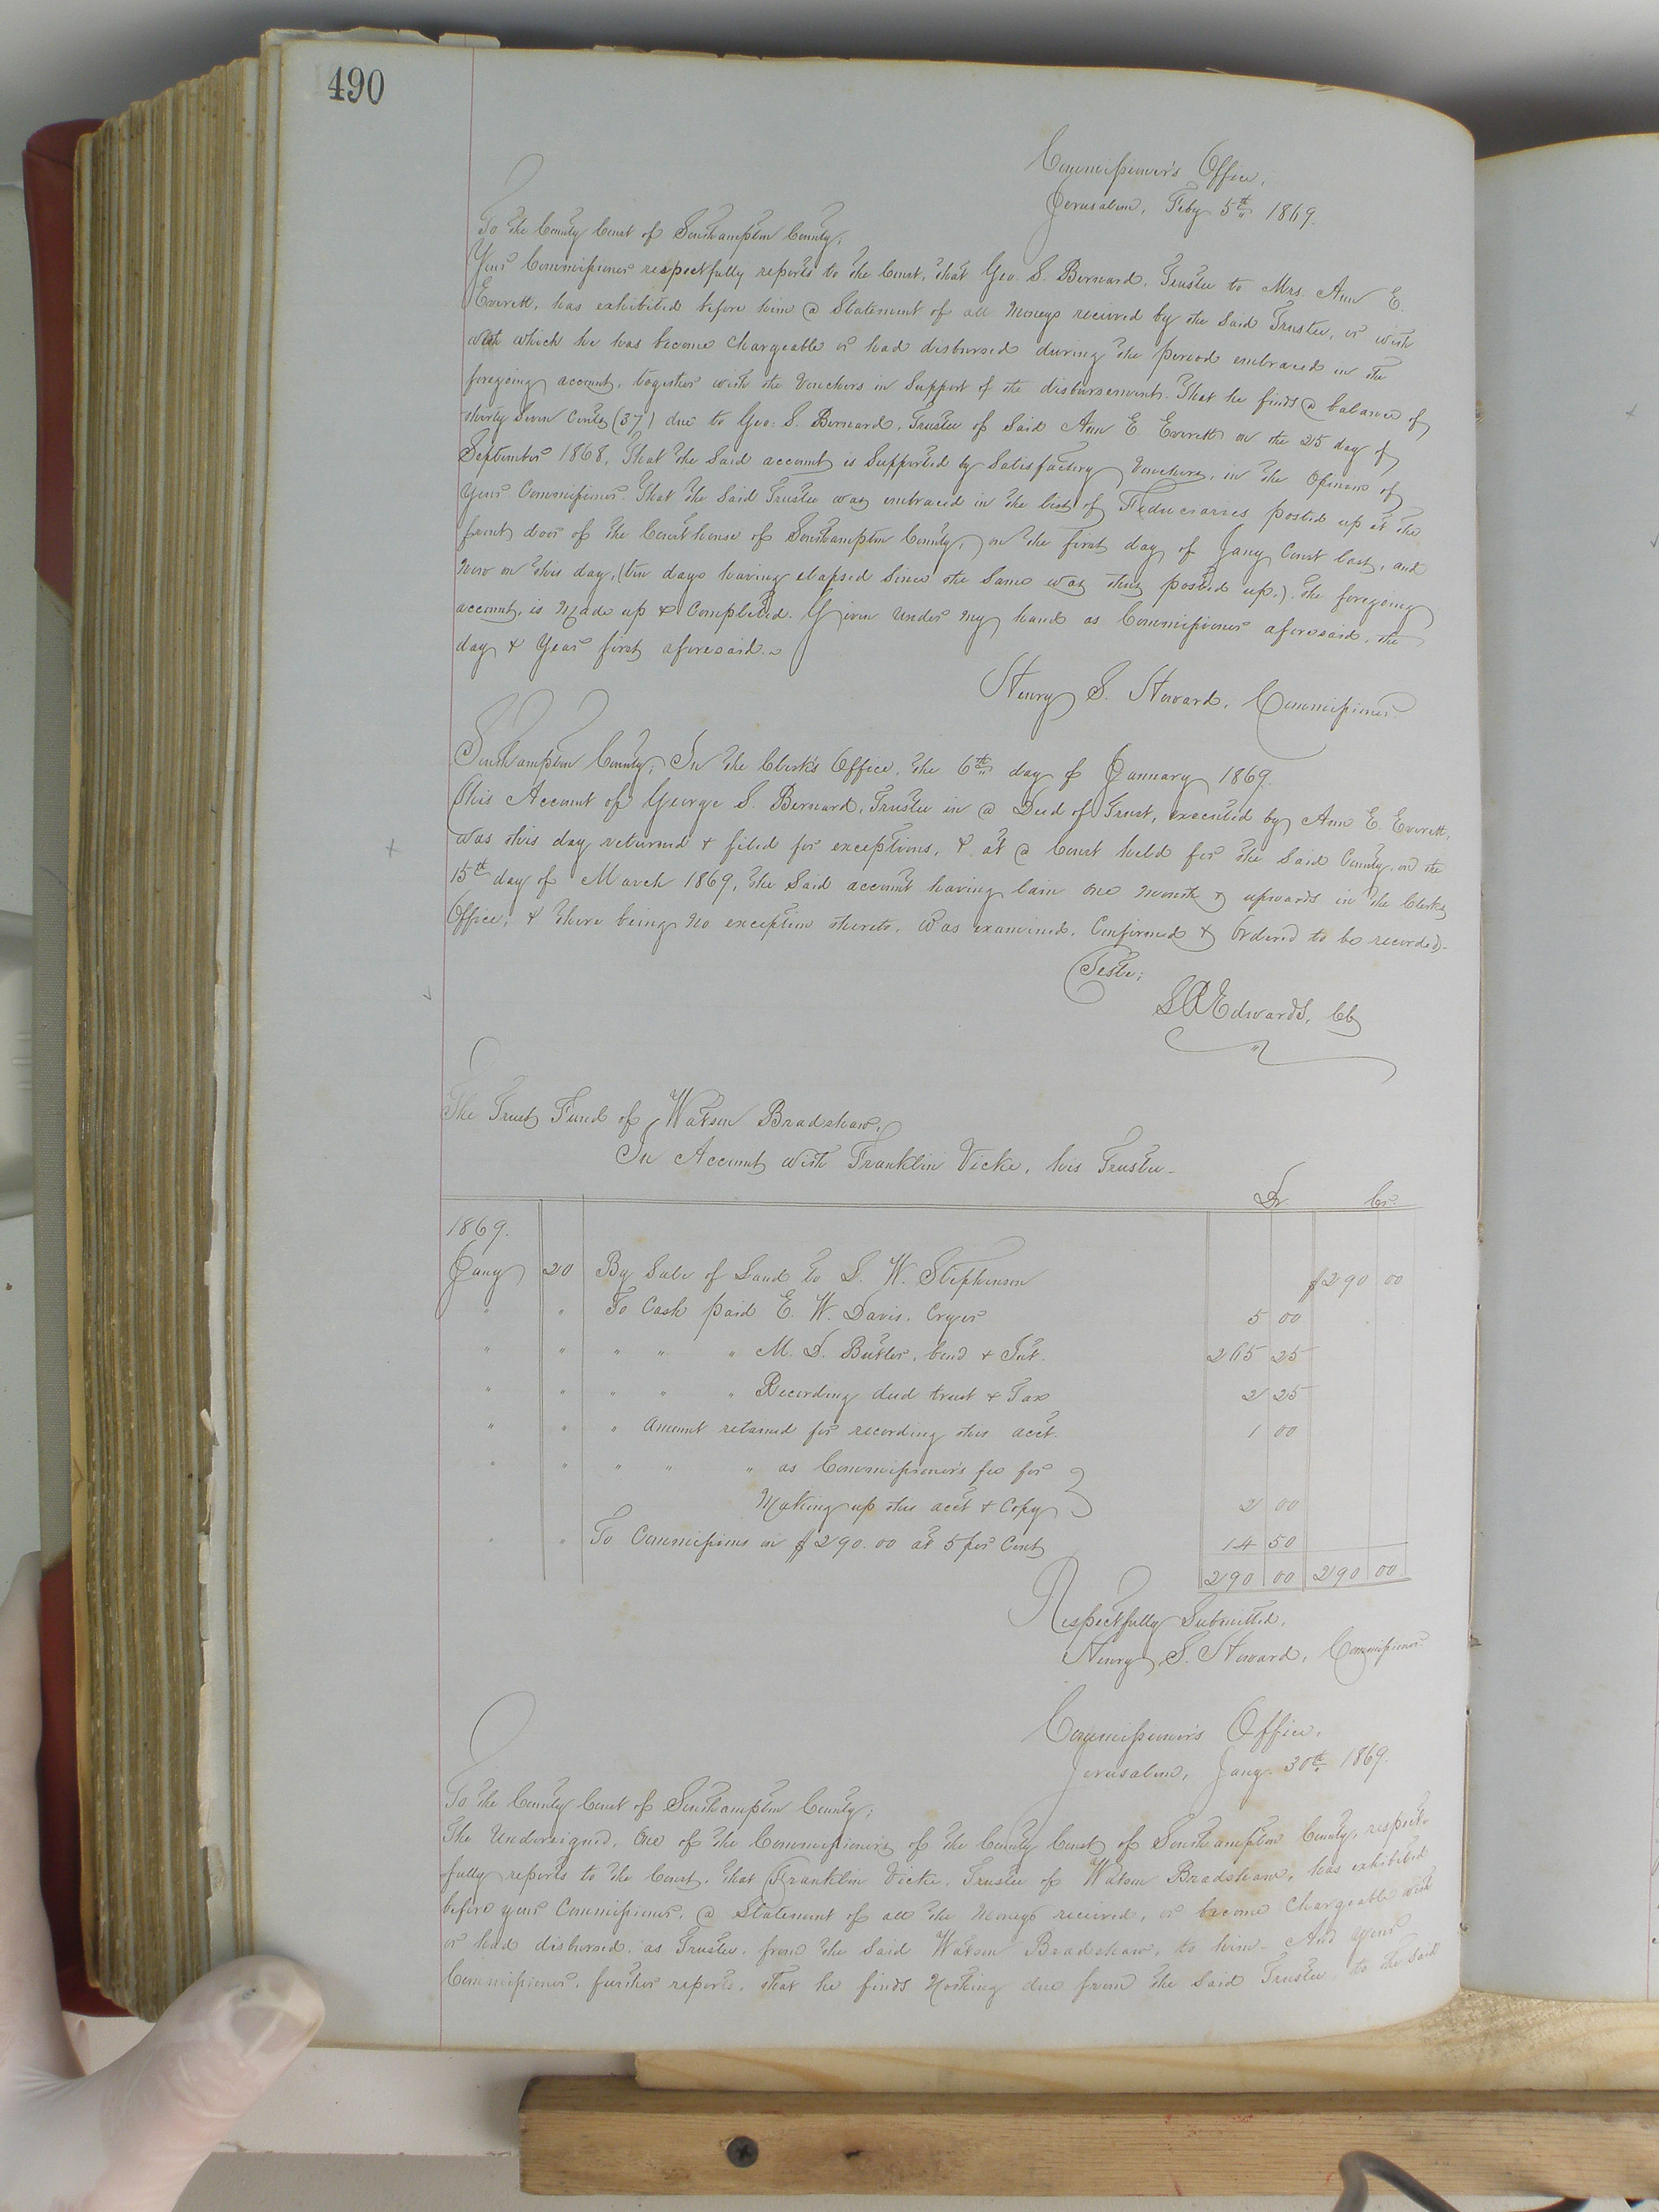 490
Commissioner's Office,
Jerusalem, Feby 5th 1869.
To the County Court of Southampton County;
Your Commissioner respectfully reports to the Court, that Geo. S. Bernard, Trustee to Mrs. Ann E.
Everett, has exhibited before him a Statement of all Moneys received by the said Trustee, or with
with which he has become Chargeable or had disbursed during the period embraced in the
foregoing account, together with the Vouchers in Support of the disbursements. That he finds a balance of
thirty seven Cents (37) due to Geo: S. Bernard, Trustee of Said Ann E. Everett on the 25 day of
September 1868, That the Said account is Supported by Satisfactory Vouchers, in the Opinion of
Your Commissioner. That the Said Trustee was embraced in the list of Fiduciaries posted up at the
front door of the Court house of Southampton County, on the first day of Jany Court last, and
Now on this day, (ten days having elapsed Since the Same was thus posted up,) the foregoing
account, is Made up & Completed. Given under my hand as Commissioner aforesaid, the
day & Year first aforesaid.
Henry S. Howard, Commissioner
Southampton County; In the Clerk's Office, the 6th day of January 1869.
This Account of George S. Bernard, Trustee in a Deed of Trust, executed by Ann E. Everett,
was this day returned & filed for exceptions, & at a Court held for the Said County, on the
15th day of March 1869, the Said account having lain one month & upwards in the Clerks
Office, & there being No exception thereto, was examined, Confirmed & Ordered to be recorded.
Teste;
LREdwards, CC
The Trust Fund of Watson Bradshaw,
In Account with Franklin Vicke, his Trustee
Dr Cr.
1869.
Jany 20 By Sale of Land to S. W. Stephenson $290 00
" " To Cash paid E. W. Davis, Cryer 5 00
" " " " " M. D. Butler, bond & Int. 265 25
" " " " " Recording deed trust & Tax 2 25
" " " Amount retained for recording this acct. 1 00
" " " " " as Commissioner's fee for
Making up this acct & Copy 2 00
" " To Commissions on $290.00 at 5 per Cent 14 50
290 00 290 00
Respectfully Submitted,
Henry S. Howard, Commissioner
Commissioner's Office,
Jerusalem, Jany. 30th 1869.
To the County Court of Southampton County;
The Undersigned, One of the Commissioners of the County Court of Southampton County, respect-
fully reports to the Court, that Franklin Vicke, Trustee of Watson Bradshaw, has exhibited
before your Commissioner, a Statement of all the Moneys received, or become Chargeable with
or had disbursed, as Trustee, from the Said Watson Bradshaw, to him. And your
Commissioner, further reports, that he finds Nothing due from the Said Trustee, to the said